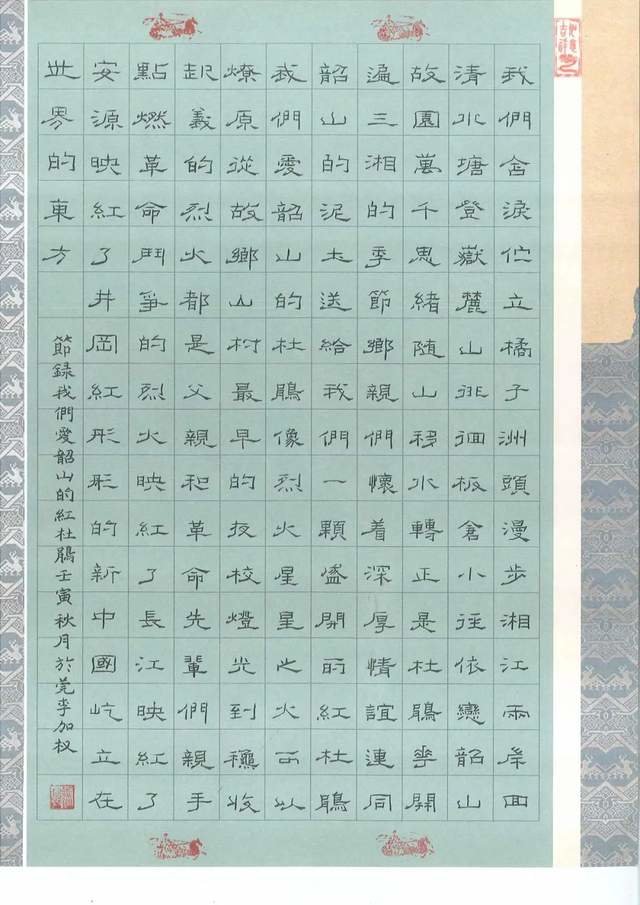 我們含淚伫立橘子洲頭漫步湘江兩岸回
清水塘登嶽麓山徘徊板倉小徑依戀韶山
故園萬千思緒随山移水轉正是杜鵑花開
遍三湘的季節鄉親們懷着深厚情誼連同
韶山的泥土送給我們一顆盛開的紅杜鵑
我們愛韶山的杜鵑像烈火星星之火可以
燎原從故鄉山村最早的夜校燈光到穐收
起義的烈火都是父親和革命先輩們親手
點燃革命鬥爭的烈火映紅了長江映紅了
安源映紅了井岡紅彤彤的新中國屹立在
世界的東方
節録我們愛韶山的紅杜鵑壬寅秋月於莞李加权